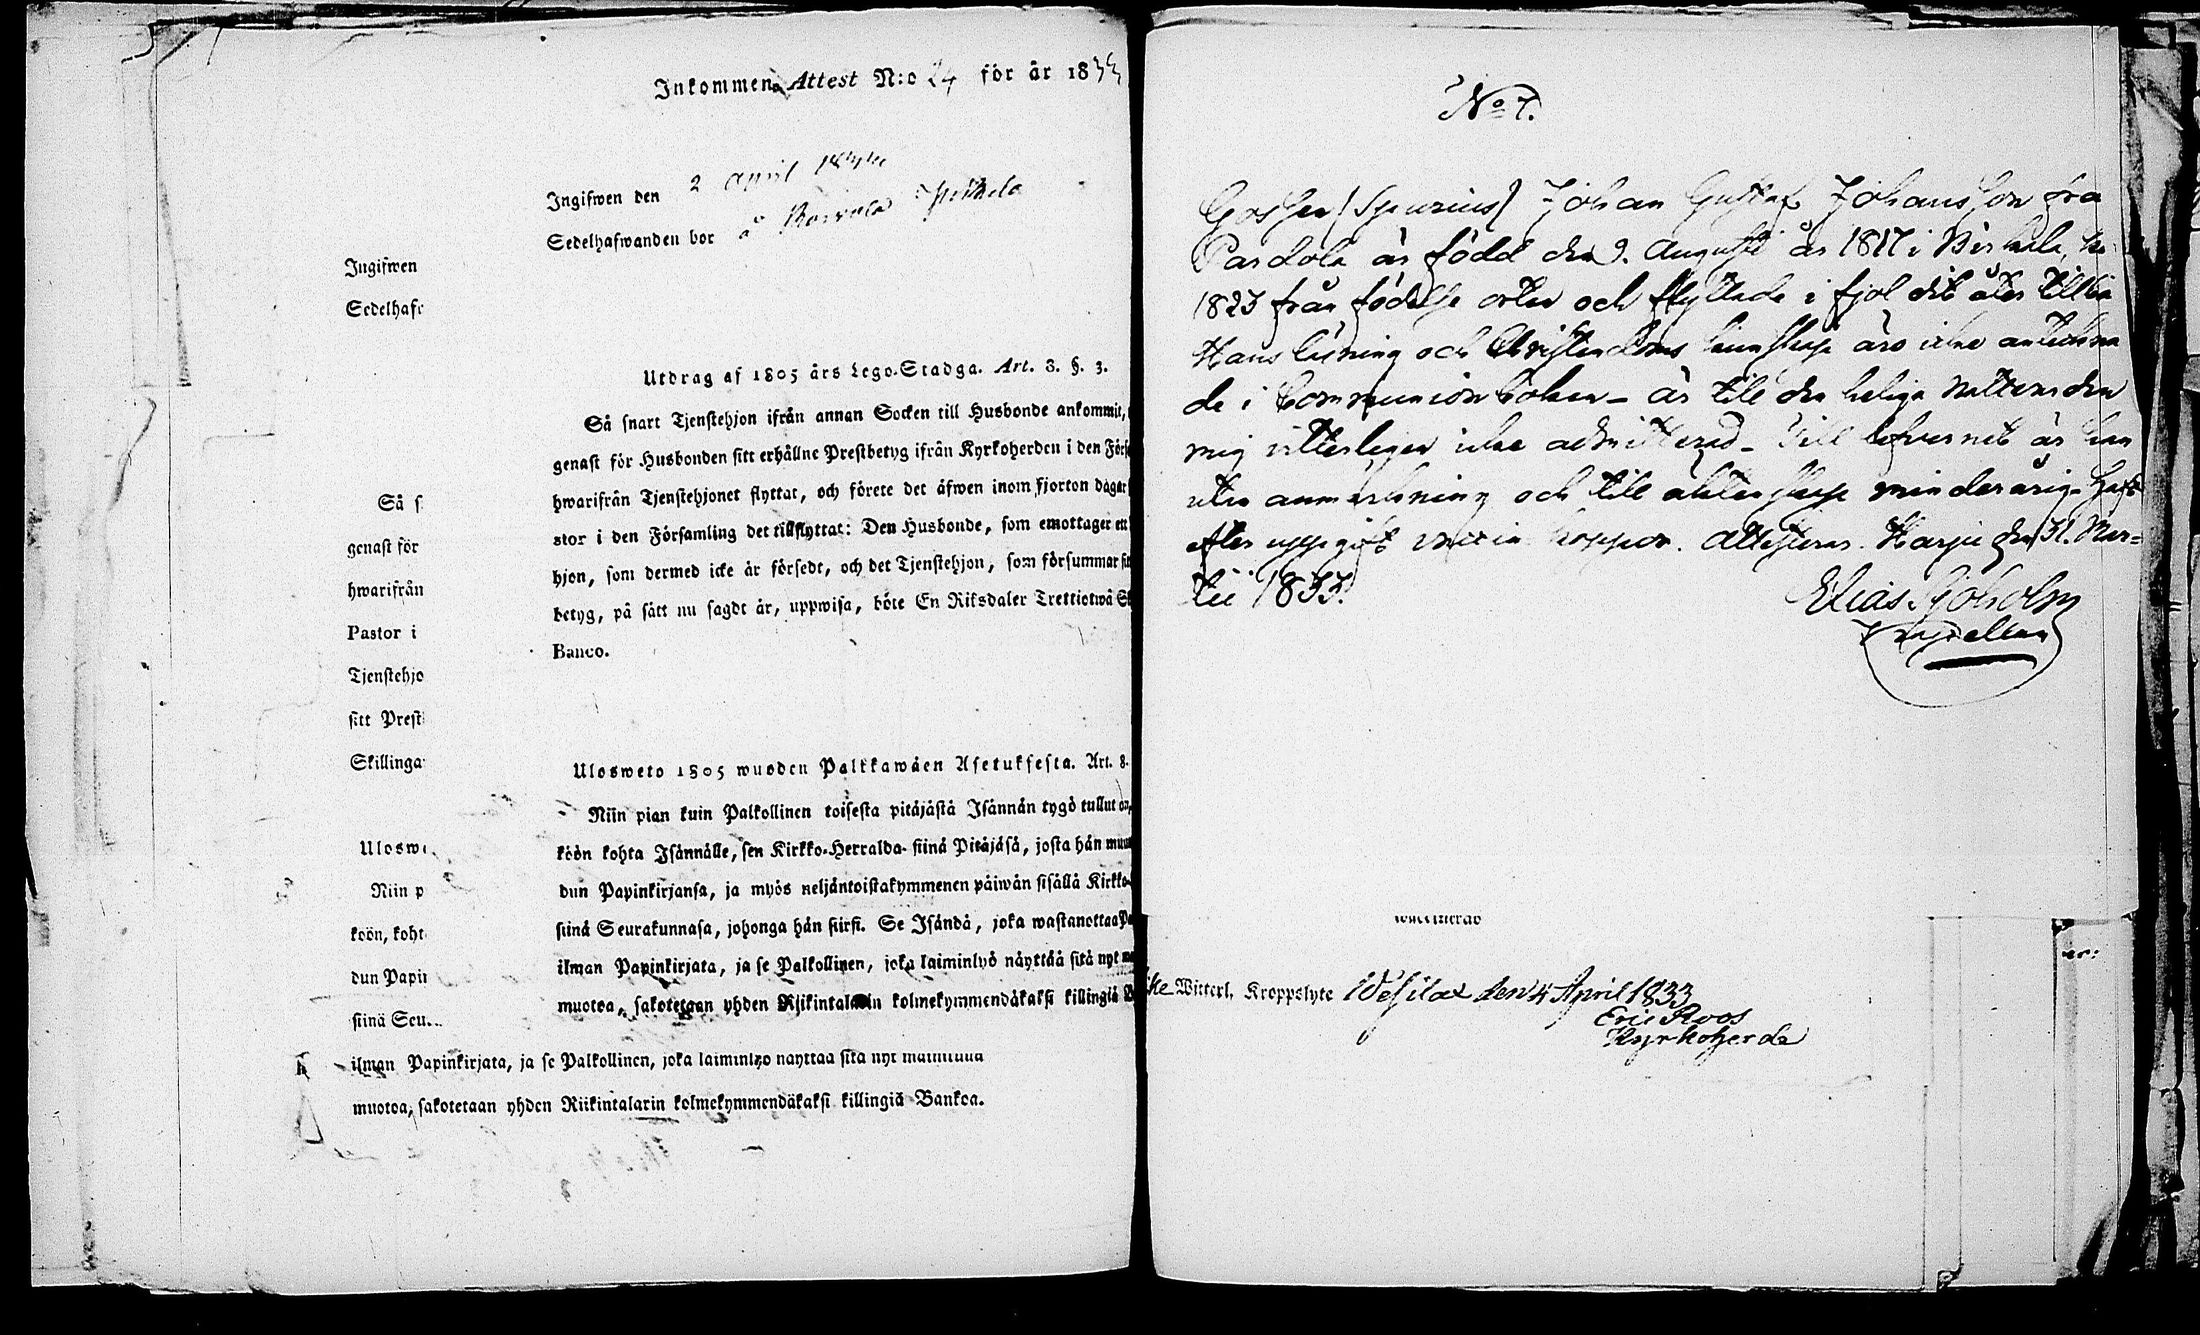 Inkommen Attest N:o 24 för år 1833
Ingifwen den 2 April
Sedelhafwanden bor å
Ingifwen
Sedelhafv
Utdrag af 1805 års Lego-Stadga. Art. 8. §. 3.
Så snart Tjenstehjon ifrån annan Socken till Husbonde ankommit,
genast för Husbonden sitt erhållne Prestbetyg ifrån Kyrkoherden i den Förs
hwarifrån Tjenstehjonet flyttat, och förete det äfwen inom fjorton dagar
stor i den Församling det tillflyttat: Den Husbonde, som emottager ett
hjon, som dermed icke är försedt, och det Tjenstehjon, som försummar
betyg, på sätt nu sagdt är, uppwisa, böte En Riksdaler Trettiotwå S
Banco.
Så s
genast för
hwarifrån
Pastor i
Tjenstehjo
sitt Prest
Skillinga
Ulosweto 1805 wuoden Palkkawäen Asetuksesta. Art. 8.
Niin pian kuin Palkollinen toisesta pitäjästä Isännän tygö tullut on,
köön kohta Isännälle, sen Kirkko-Herralda siinä Pitäjäsä, josta hän muu
dun Papinkirjansa, ja myös neljäntoistakymmenen päiwän sisällä Kirkko-
siinä Seurakunnasa, johonga hän siirsi. Se Isändä, joka wastanottaa Pa
ilman Papinkirjata, ja se Palkollinen, joka laiminlyö näyttää sitä nyt
muotoa, sakotetaan yhden Rjikintalarin kolmekymmendäkaksi killingiä
Ulosw
Niin p
köön, koht
dun Papin
siinä Seu
ilman Papinkirjata, ja se Palkollinen, joka laiminlyö näyttää sitä nyt mainittua
muotoa, sakotetaan yhden Riikintalarin kolmekymmendäkaksi killingiä Bankoa.
No 7.
Gossen (Spurius) Johan Gustaf Johansson fra
Pardola är född den 9. Augusti år 1817 i Birkala,
1823 från födelse orten och flyttade i fjol dit åter
Hans läsning och Christendoms kunskap äro icke anteckna
de i Communion boken - är till den heliga Nattvarden
mig vitterligen icke admitterad - Till lefvernet är han
utan anmärkning och till äktenskap minderårig. Haft
efter uppgift vaccin koppor. Attesteras. Harju den 31. Mar=
tii 1833.
Elias Sjöholm
Kapellan
Witterl. Kroppslyte Wesilax den 4 April 1833
Eric Roos
Kyrkoherde